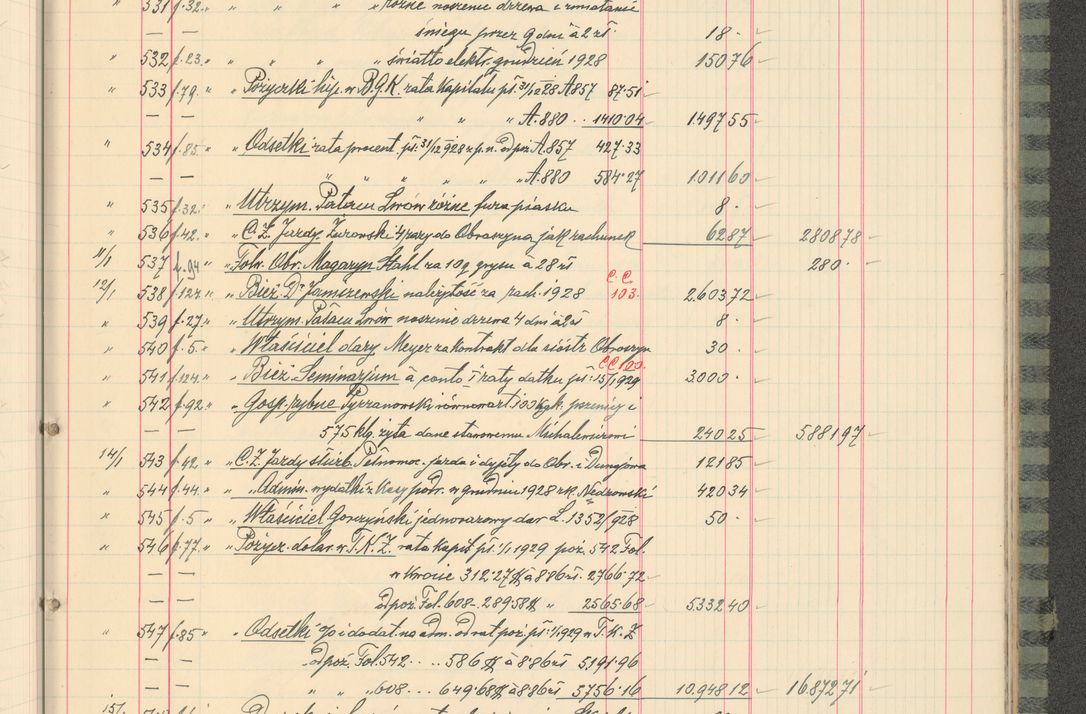 531 f.32. " " " " różne noszenie drzewa i zmiatanie
— — śniegu przez 9 dni à 2 zł 18 ·
" 532 f.23. " " " " światło elektr. grudzień 1928 150 76
" 533 f.79. " Pożyczki hip. w B.G.K. rata kapitału pł. 31/12 28 A.857 87·51
— — " " " A.880 . . 1410·04 1.497 55
" 534 f.85. " Odsetki rata procent. pł. 31/12 928 r. p. n. od poż. A.857 427·33
— — " " " " " " A.880 584·27 1.011 60
" 535 f.32. " Utrzym. Pałacu Lwów różne fura piasku 8 ·
" 536 f.42. " C.Z. Jazdy Żurowski 4 razy do Obroszyna jak rachunek 62 87 2808 78
11/1 537 f.94 " Folw. Obr. Magazyn Stahl za 10 q grysu à 28 zł 280 ·
12/1 538 f.127. " Bież. Dr Jamiszewski należytość za rach. 1928 C.C. 103. 2.603 72
" 539 f.27. " Utrzym. Pałacu Lwów noszenie drzewa 4 dni à 2 zł 8 ·
" 540 f.5. " Właściciel dary Meyer za kontrakt dla sióstr Obroszyn 30 ·
" 541 f.124. " Bież. Seminarjum à conto I raty datku pł. 15/1 1929 C.C. 100. 3.000 ·
" 542 f.92. " Gosp. rybne Tyrzanowski równowart. 100 klg. pszenicy i
— — 575 klg. żyta dane stawowemu 240 25 5881 97
14/1 543 f.42. " C.Z. Jazdy służb. Pełnomoc. jazda i dyjety do Obr. i 121 85
" 544 f.44. " " Admin. wydatki z Kasy podr. w grudniu 1928 rk. Nedzowski 420 34
" 545 f.5 " Właściciel Gorczyński jednorazowy dar L. 1352/928 50 ·
" 546 f.77. " Pożycz. dolar. w T.K.Z. rata kapit. pł. 1/1 1929 poż. 542 Fol.
— — w kwocie 312·27 $ à 8·86 zł. 2766·72
— — od poż. Fol. 608 – 289·58 $ " 2565·68 5332 40
" 547 f.85 " Odsetki % i dodat. na adm. od rat poż. pł. 1/1 1929 w T.K.Z
— — od poż. Fol. 542 . . . . 586 $ à 8·86 zł 5191·96
— — " " 608 . . . 649·68 $ à 8·86 zł 5756·16 10.948 12 16.872 71
15/1